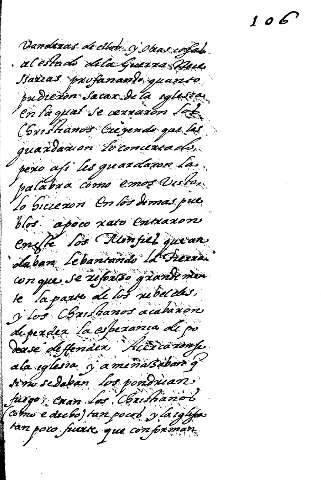 106
Vanderas de ellos y otras cosas
al estado de la Guerra Nece
sarias profanando quanto
pudieron sacar de la iglesia
en la qual se cerraron los
Christianos creyendo que les
guardarian lo concertado,
pero asi les guardaron la
palabra como emos visto
lo hicieron en los demas pue
blos. a poco rato entraron
en este los Monfies que an
daban lebantando la tierra
con que se reforzo grandemen
te la parte de los rebeldes
y los Christianos acabaron
de perder la esperanza de po
derse deffender
a la iglesia y amenazaban q
si no se daban los pondrian
fuego; eran los Christianos
(como e dicho) tan pocos y la iglesia
tan poco fuerte que conforman